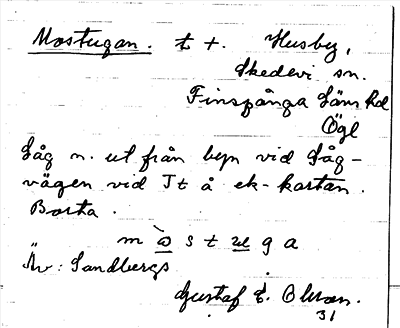 Mostugan. t t. Husby,
Skedevi sn.
Finspånga Läns hd
Ögl
Låg n. ut från byn vid Låg-
vägen vid Tt å ek-kartan.
Borta.
mòstuga
Äv: Sandbergs
Gustaf E. Olsson.
31